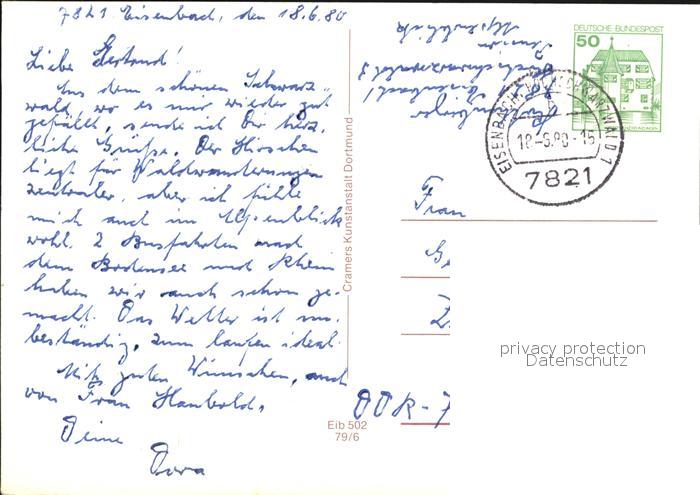 7821 Eisenbach, den 18.6.80
Liebe Gertrud!
Aus dem schönen Schwarz-
wald, wo es mir wieder gut
gefällt, sende ich Dir herz-
liche Grüße. Der Hirschen
liegt für Waldwanderungen
zentraler, aber ich fühle
mich auch im Alpenblick
wohl. 2 Busfahrten nach
dem Bodensee und Rhein
haben wir auch schon ge-
macht. Das Wetter ist un-
beständig, zum laufen ideal.
Mit guten Wünschen, auch
von Frau Humbold,
Deine
Dora
Cramers Kunstanstalt Dortmund
Eib 502
79/6
Pension
Alpenblick
Eisenbach
DEUTSCHE BUNDESPOST
50
EISENBACH HOCHSCHWARZWALD 1
18.-6.80.-15
7821
Frau
DDR-7
privacy protection
Datenschutz